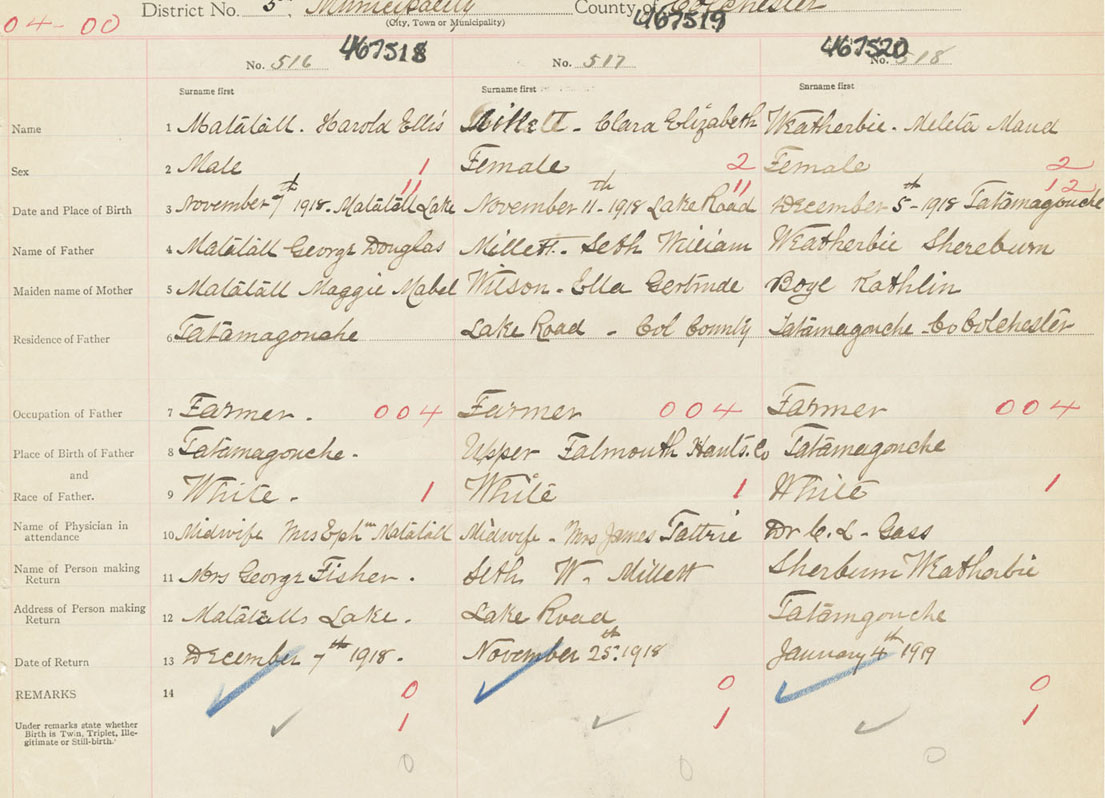 District No. 5, Municipality County of Colchester
04-00 (City, Town or Municipality) 467519
467518 467520
No. 516 No. 517 No. 518
Surname first Surname first Surname first
Name 1 Matatall. Harold Ellis Millett - Clara Elizabeth Weatherbie. Meleta Maud
Sex 2 Male 1 Female 2 Female 2
11 11 12
Date and Place of Birth 3 November 7th 1918. Matatall Lake November 11th - 1918 Lake Road December 5th - 1918 Tatamagouche
Name of Father 4 Matatall George Douglas Millett - Seth William Weatherbie Shereburn
Maiden name of Mother 5 Matatall Maggie Mabel Wilson - Ella Gertrude Boye Kathlin
Residence of Father 6 Tatamagouche Lake Road - Col County Tatamagouche Co Colchester
Occupation of Father 7 Farmer. 004 Farmer 004 Farmer 004
Place of Birth of Father 8 Tatamagouche. Upper Falmouth Hants. Co Tatamagouche
and
Race of Father. 9 White. 1 White 1 White 1
Name of Physician in
attendance 10 Midwife Mrs Ephm Matatall Midwife - Mrs James Tattrie Dr C. L - Gass
Name of Person making
Return 11 Mrs George Fisher. Seth W. Millett Sherburn Weatherbie
Address of Person making
Return 12 Matatalls Lake. Lake Road Tatamgouche
Date of Return 13 December 7th 1918. November 25th. 1918 January 4th 1919
REMARKS 14 0 0 0
Under remarks state whether
Birth is Twin, Triplet, Ille-
gitimate or Still-birth. 1 1 1
0 0 0